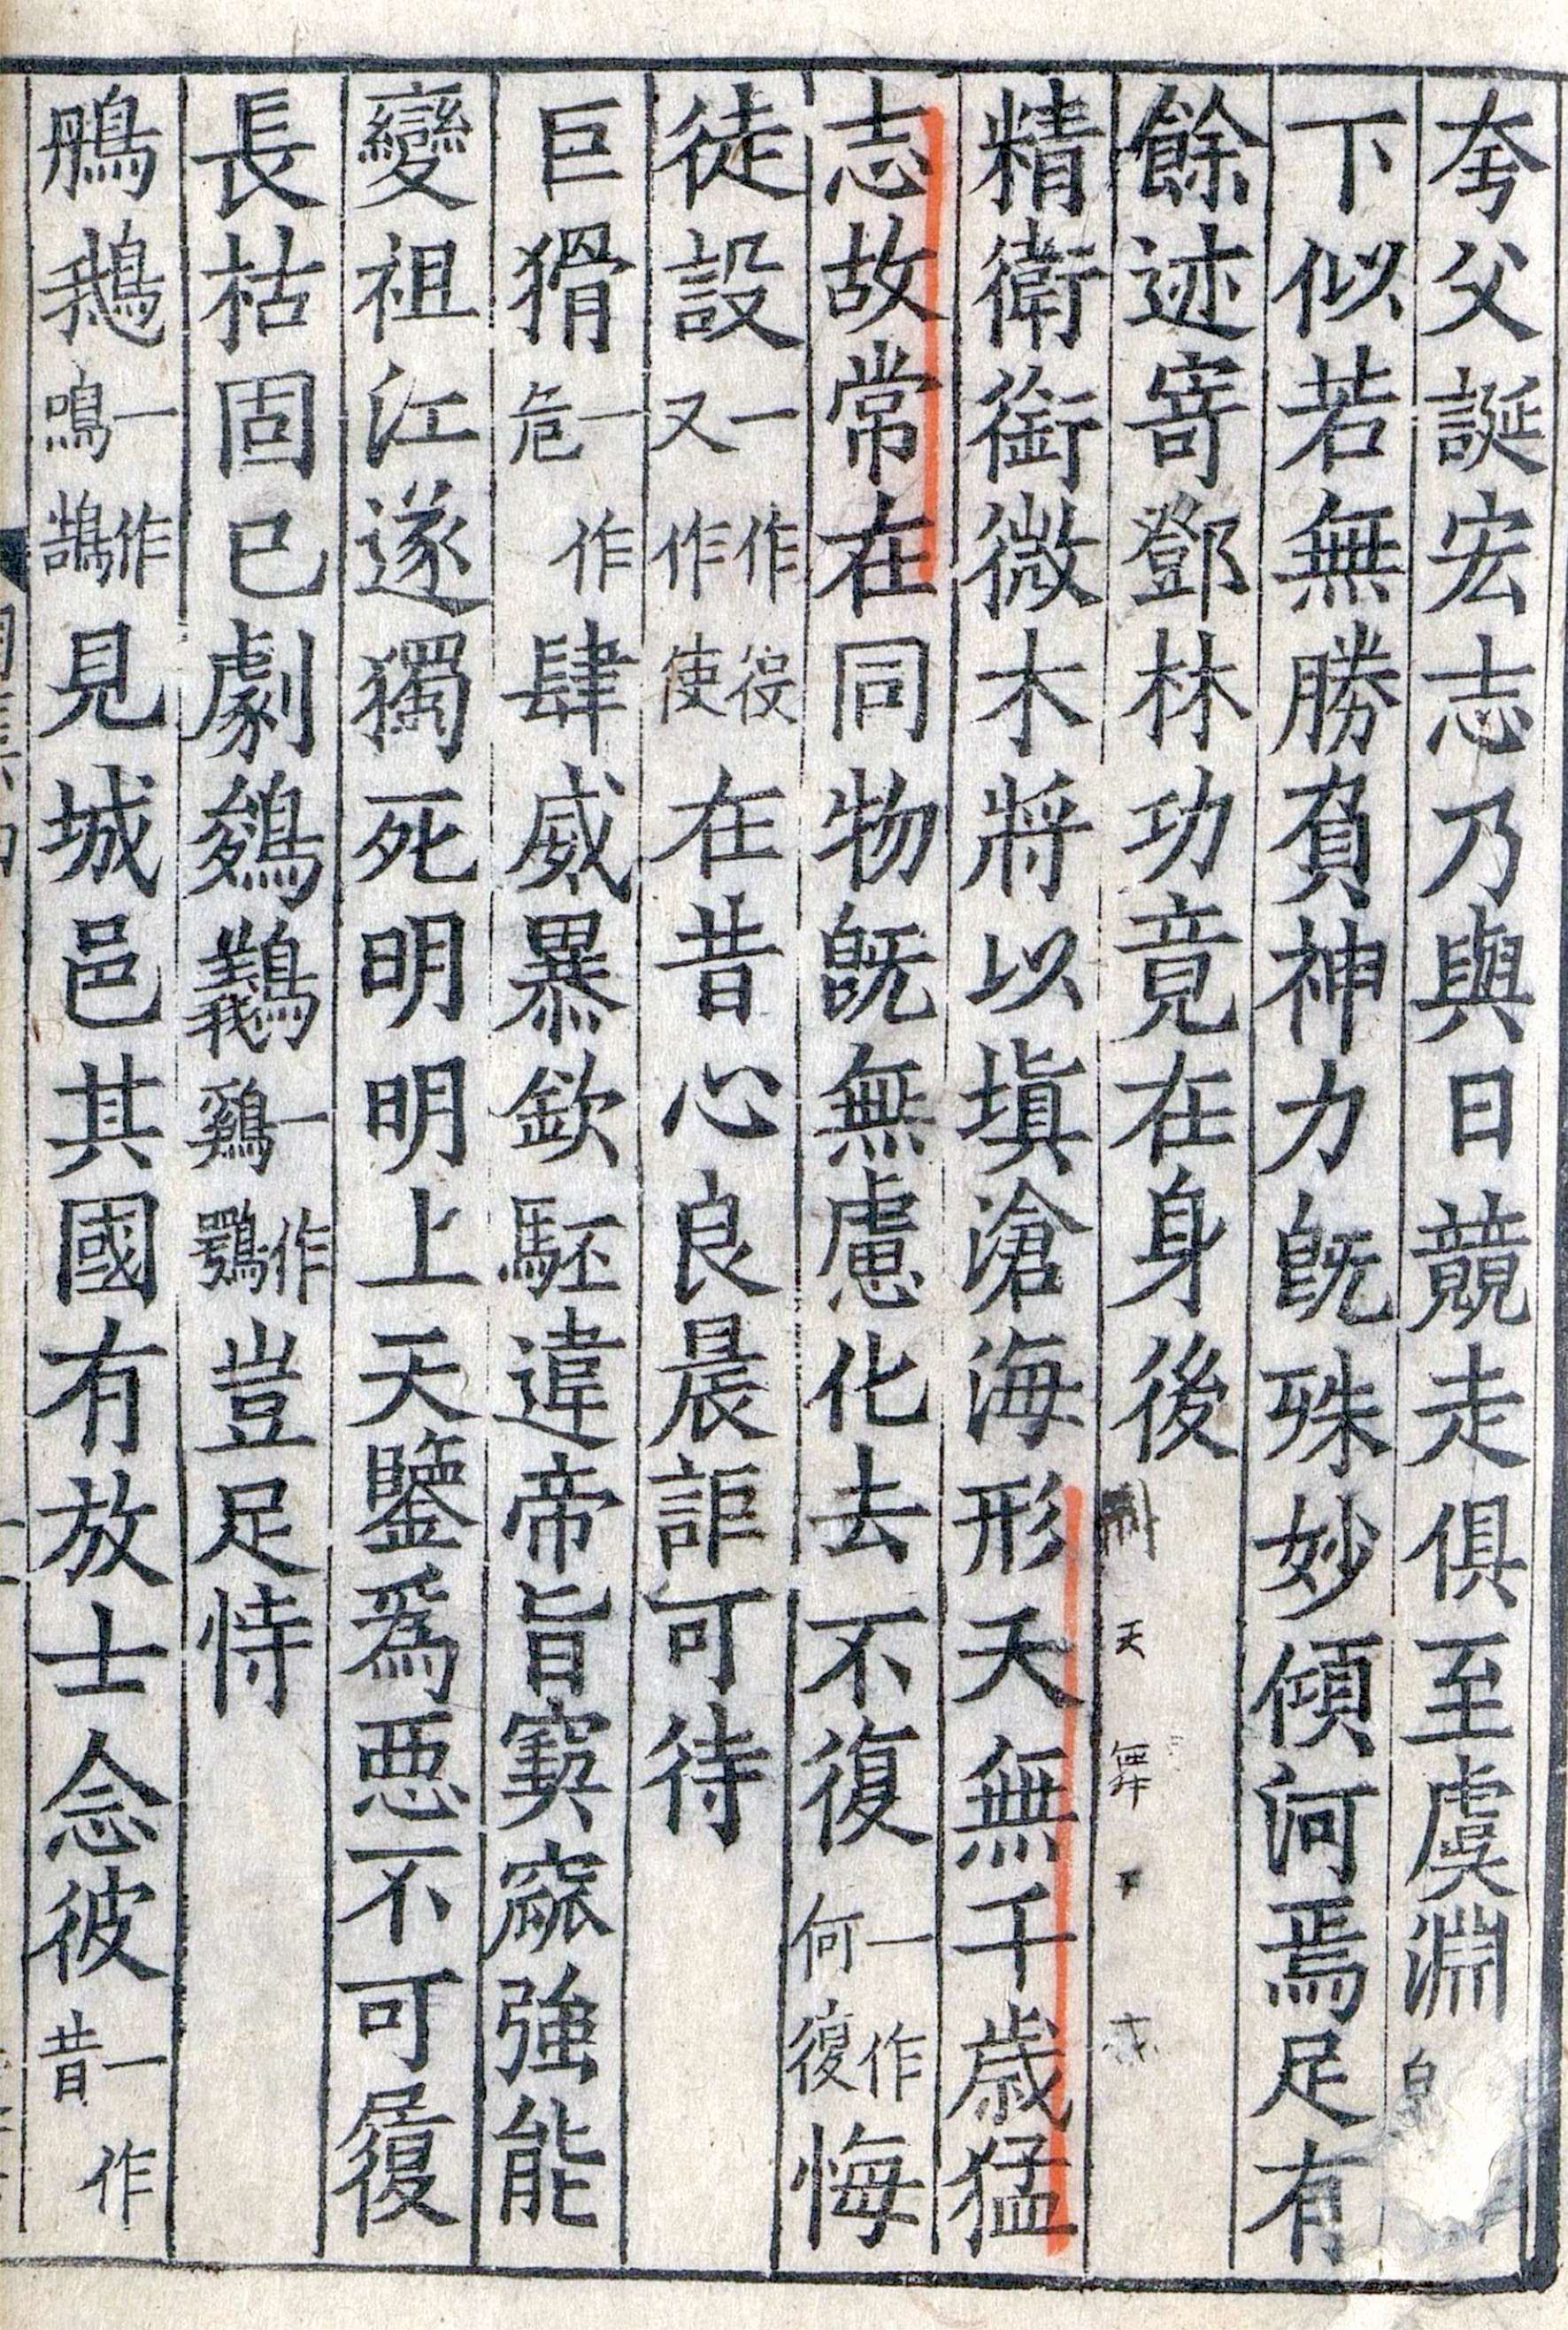 夸父誕宏志乃與日競走俱至虞淵
下似若無勝負神力旣殊妙傾河焉足有
餘迹寄鄧林功竟在身後
天
精衛銜微木將以塡滄海形夭無千歲猛
志故常在同物旣無慮化去不復一作何復悔
徒設一作役又作使在昔心良晨詎可待
巨猾一作危肆威暴欽駓違帝旨窫窳強能
變祖江遂獨死明明上天鑒爲惡不可履
長枯固已劇鵕鸃一作鵎鶚豈足恃
鵃鵝一作鳴鵠見城邑其國有放士念彼一作昔